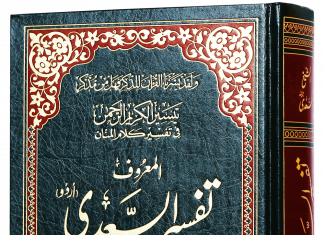 ولقد يسرنا القرآن للذكر فهل من مدكر
تيسير الكريم الرحمن
في تفسير كلام المنان
المعروف
تفسير السعدي (اردو)